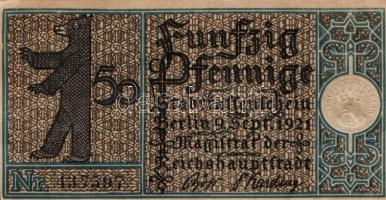 Fünfzig
50 Pfennige
Stadtkassenschein
Berlin 9. Sept. 1921
Magistrat der
Reichshauptstadt
Nr. 137597